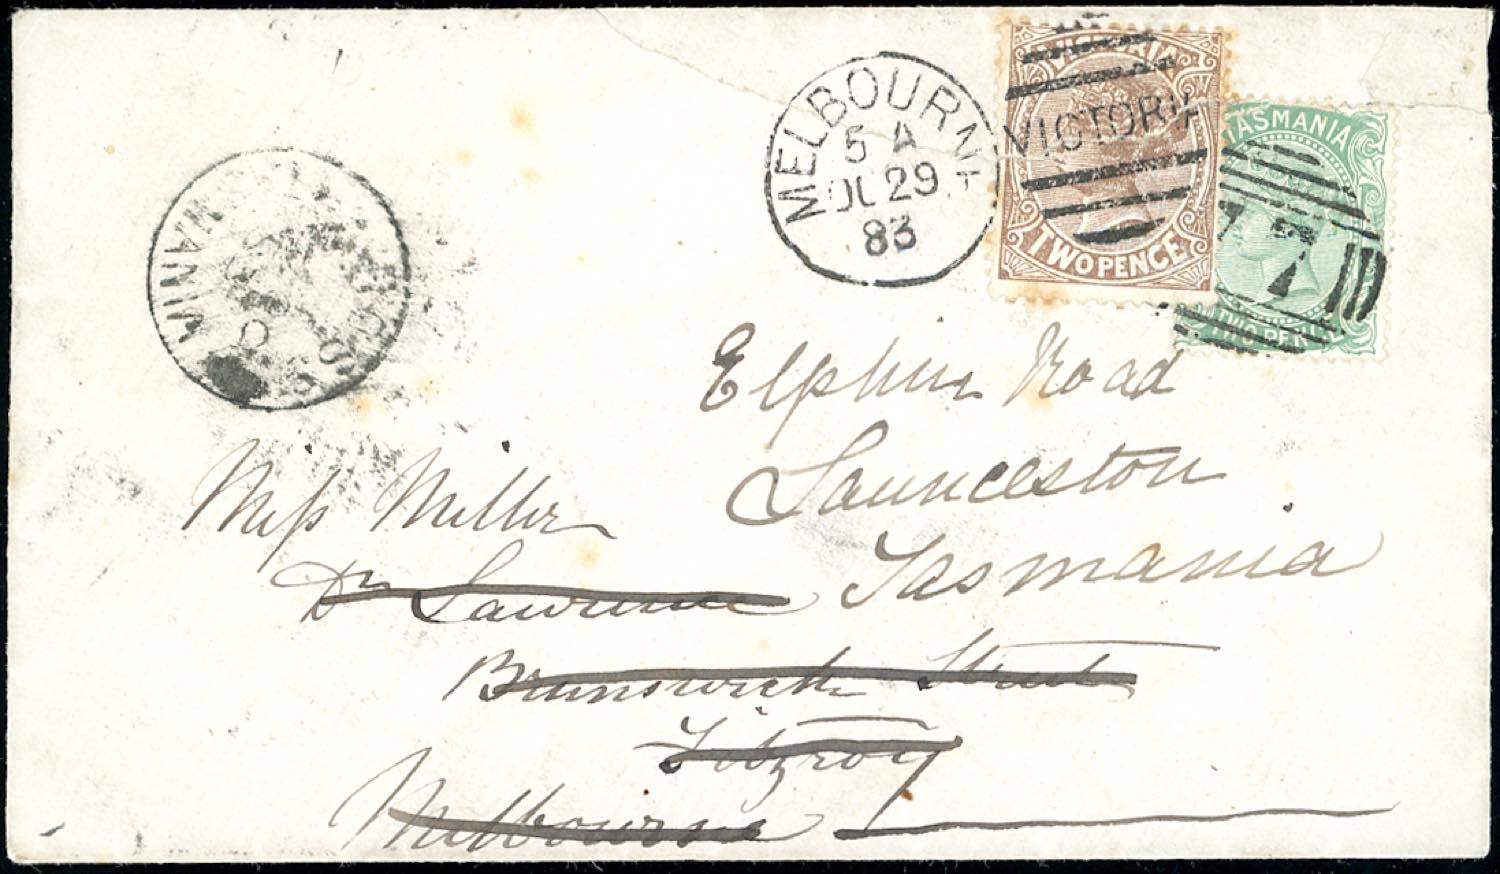 MELBOURNE
5 A
OC 29
83
VICTORIA
VICTORIA
TWO PENCE
TASMANIA
TWO PENCE
Elphin Road
Launceston
Tasmania
Miss Miller
Dr Lawrence
Brunswick Street
Fitzroy
Melbourne